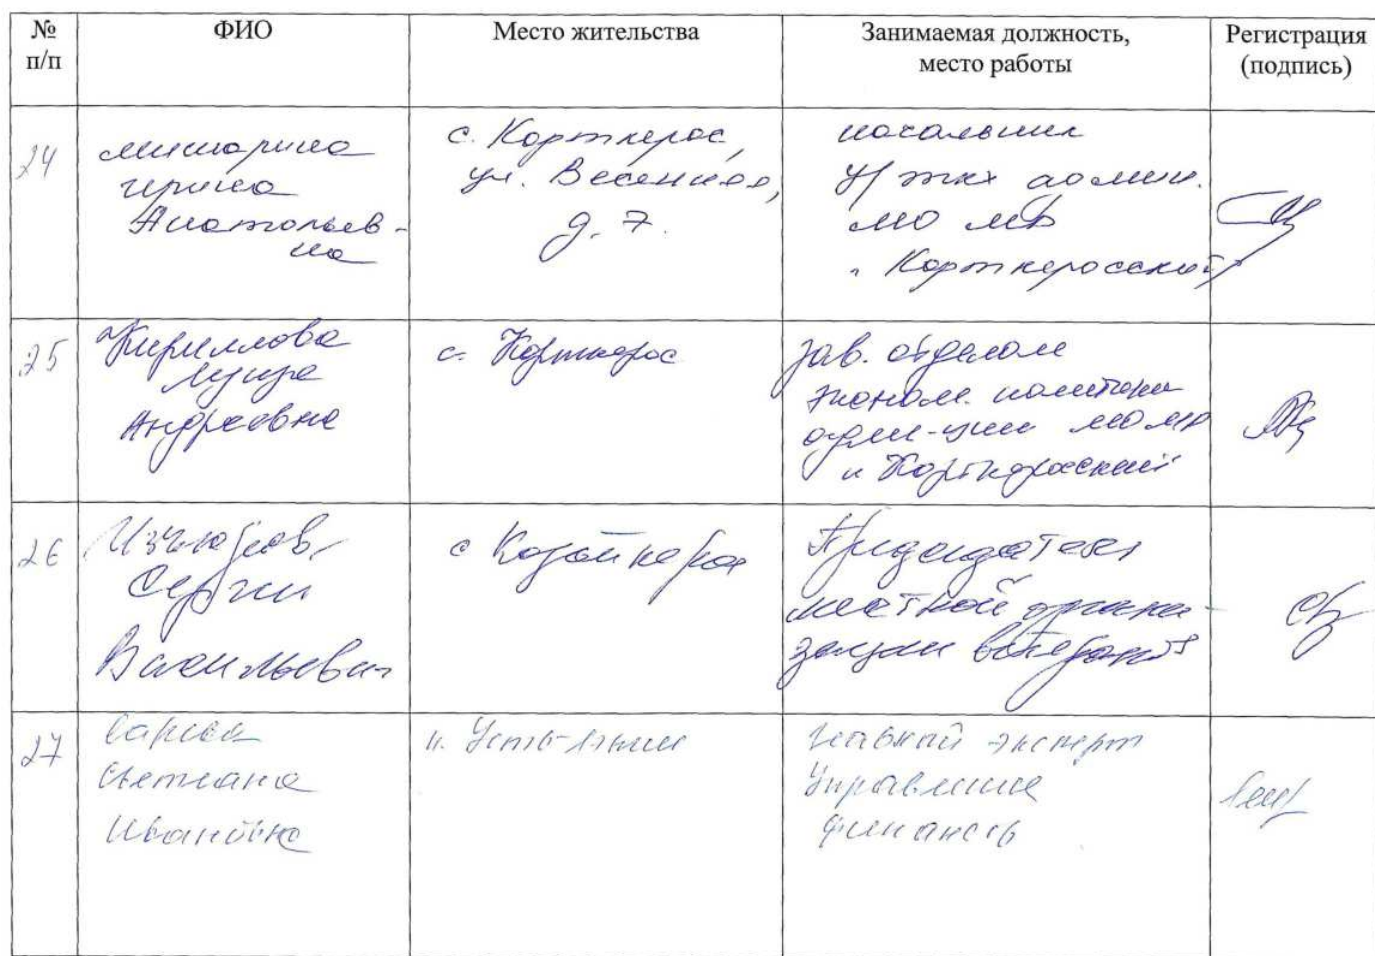 № п/п
ФИО
Место жительства
Занимаемая должность, место работы
Регистрация (подпись)
24
Мишарина
Ирина
Анатольев-
на
с. Корткерос,
ул. Весенняя,
д. 7.
начальник
админ.
МО МР
"Корткеросский"
25
Кириллова
Луиза
Андреевна
с. Корткерос
зав. отделом
эконом. политики
адми-ции МО МР
"Корткеросский"
26
Изъюров
Сергей
Васильевич
с Корткерос
Председатель
местной органи-
зации ветеранов
27
Светлана
Ивановна
главный эксперт
Управления
финансов